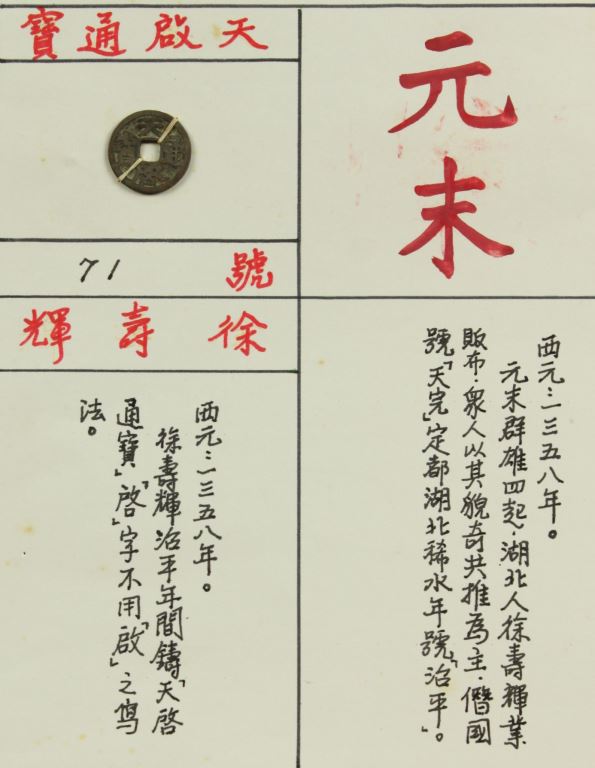 元末
西元:一三五八年。
元末群雄四起,湖北人徐壽輝業
販布,衆人以其貌奇共推為主,僭國
號「天完」定都湖北稀水年號「治平」。
天啟通寶
號 71
徐壽輝
西元:一三五八年。
徐壽輝治平年間鑄「天啓
通寶」「啓」字不用「啟」之寫
法。